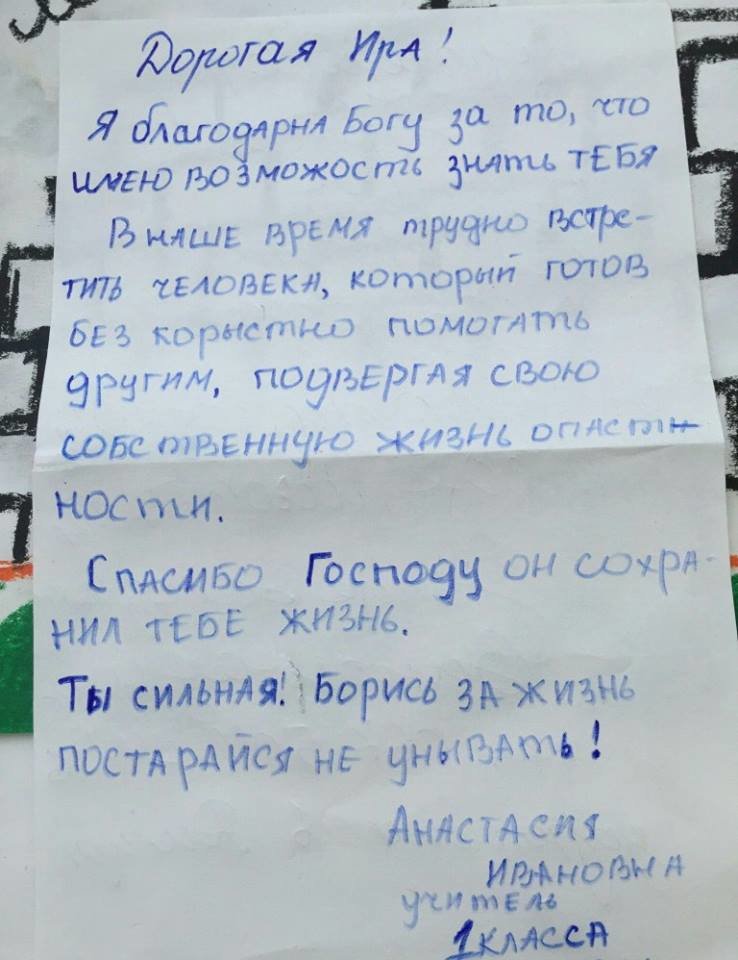 Дорогая Ира!
Я благодарна Богу за то, что
имею возможость знать тебя
В наше время трудно встре-
тить человека, который готов
без корыстно помогать
другим, подвергая свою
собственную жизнь опасти
ности.
Спасибо Господу он сохра-
нил тебе жизнь.
Ты сильная! Борись за жизнь
постарайся не унывать!
Анастасия
Ивановна
учитель
1 класса